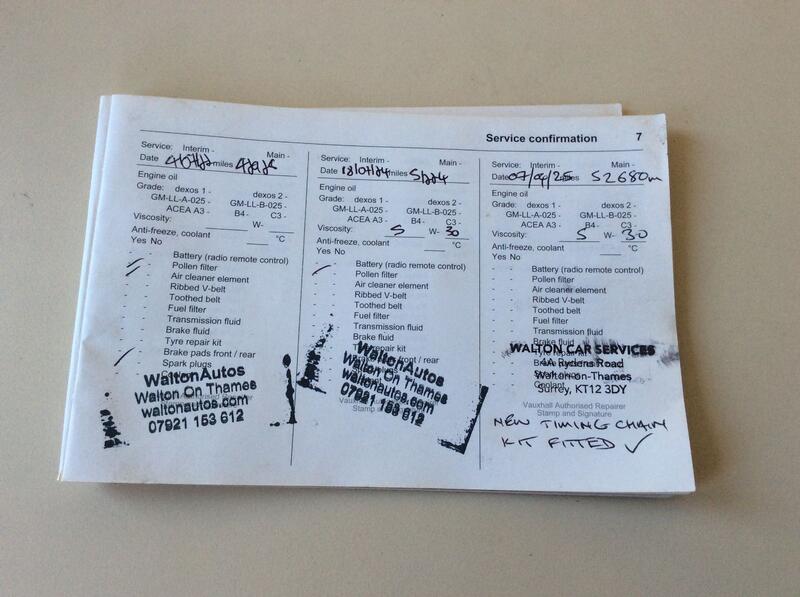 Service confirmation 7
Service: Interim - Main -
Date miles
Engine oil
Grade: dexos 1 - dexos 2 -
GM-LL-A-025 - GM-LL-B-025 -
ACEA A3 - B4 - C3 -
Viscosity: W-
Anti-freeze, coolant °C
Yes No
- - Battery (radio remote control)
- - Pollen filter
- - Air cleaner element
- - Ribbed V-belt
- - Toothed belt
- - Fuel filter
- - Transmission fluid
- - Brake fluid
- - Tyre repair kit
- - Brake pads front / rear
- - Spark plugs
WaltonAutos
Walton On Thames
waltonautos.com
07921 153 612
Service: Interim - Main -
Date 18/07/24 miles
Engine oil
Grade: dexos 1 - dexos 2 -
GM-LL-A-025 - GM-LL-B-025 -
ACEA A3 - B4 - C3 -
Viscosity: 5 W- 30
Anti-freeze, coolant °C
Yes No
- - Battery (radio remote control)
- - Pollen filter
- - Air cleaner element
- - Ribbed V-belt
- - Toothed belt
- - Fuel filter
- - Transmission fluid
- - Brake fluid
- - Tyre repair kit
- - front / rear
WaltonAutos
Walton On Thames
waltonautos.com
07921 153 612
Stamp and
Service: Interim - Main -
Date 07/04/25 miles 52680m
Engine oil
Grade: dexos 1 - dexos 2 -
GM-LL-A-025 - GM-LL-B-025 -
ACEA A3 - B4 - C3 -
Viscosity: 5 W- 30
Anti-freeze, coolant °C
Yes No
- - Battery (radio remote control)
- - Pollen filter
- - Air cleaner element
- - Ribbed V-belt
- - Toothed belt
- - Fuel filter
- - Transmission fluid
- - Brake fluid
WALTON CAR SERVICES
4A Rydens Road
Walton-on-Thames
Surrey, KT12 3DY
Coolant
Vauxhall Authorised Repairer
Stamp and Signature
NEW TIMING CHAIN
KIT FITTED ✓